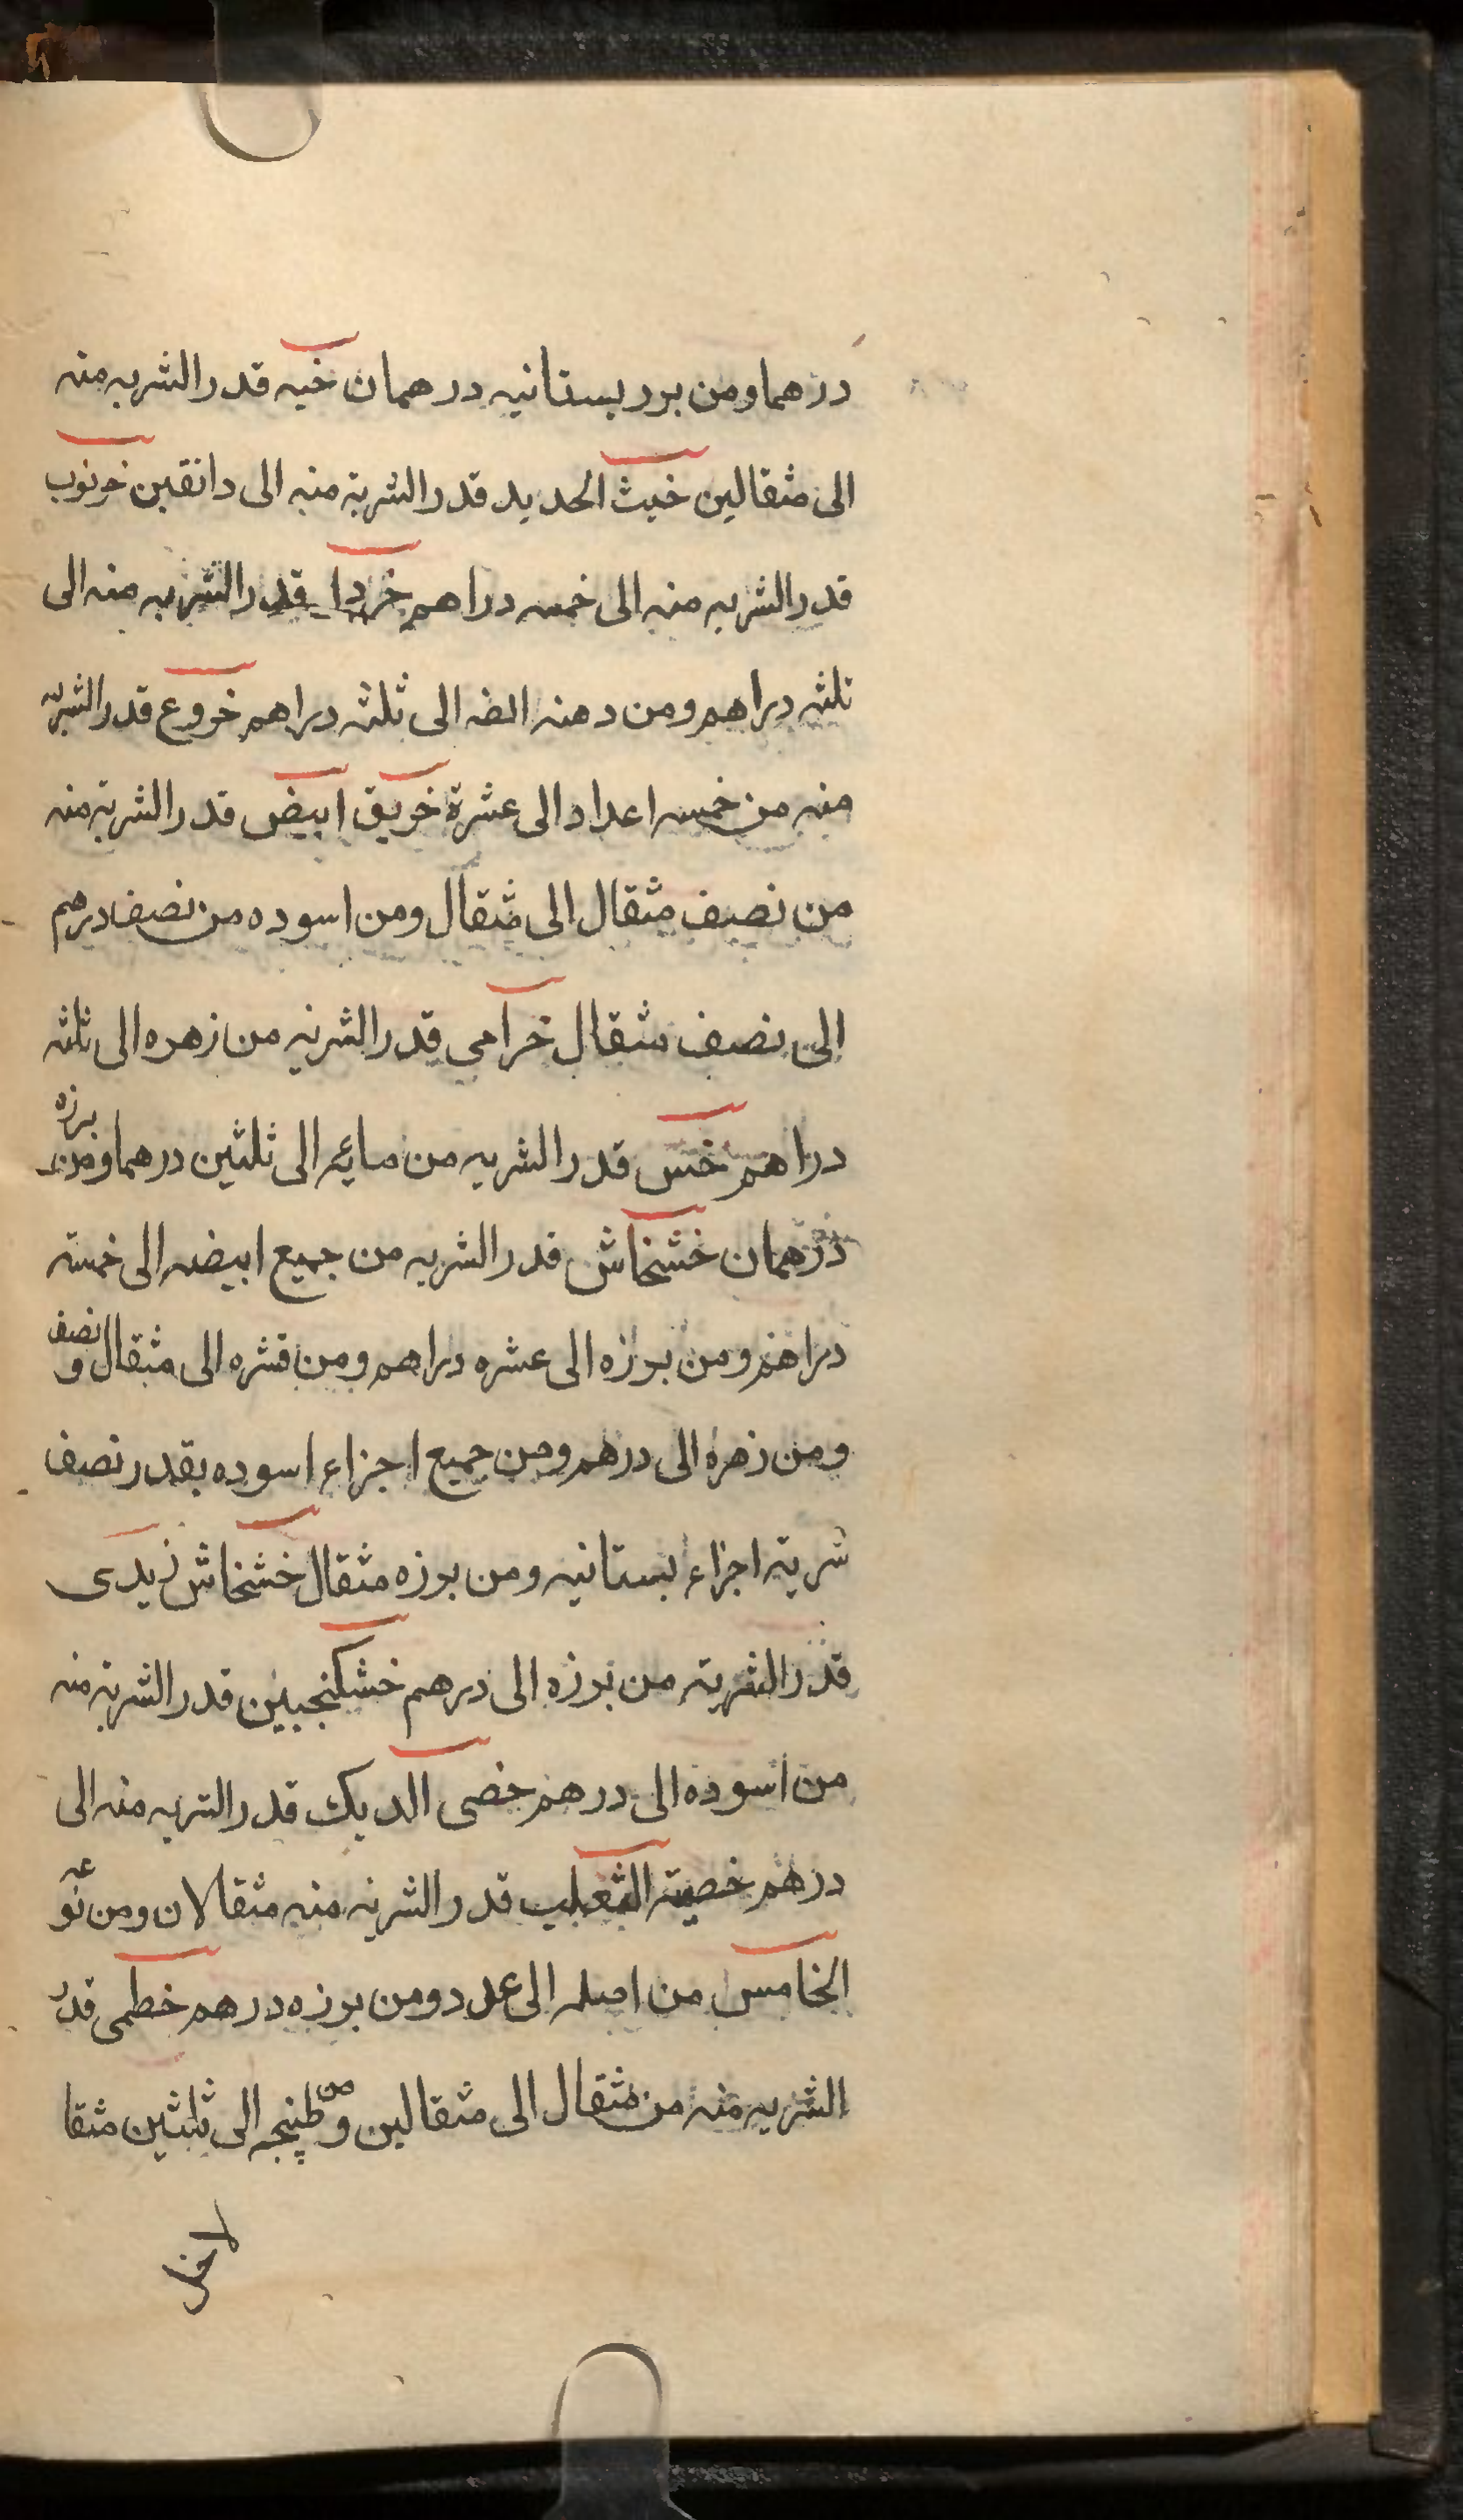 درهما ومن برر بستانيه درهمان خبه قدر الشربه منه
الى مثقالين خبث الحديد قدر الشربة منه الى دانقين خرنوب
قدر الشربه منه الى خمسه دراهم خردا قدر الشربه منه الى
ثلثه دراهم ومن دهنه الى ثلثه دراهم خروع قدر الشربه
منه من خمسه اعداد الى عشرة خربق ابيض قدر الشربة منه
من نصف مثقال الى مثقال ومن اسوده من نصف درهم
الى نصف مثقال خزامى قدر الشربه من زهره الى ثلثه
دراهم خس قدر الشربه من مائه الى ثلثين درهما ومن برزه
درهمان خشخاش قدر الشربه من جميع ابيضه الى خمسة
دراهم ومن بورزه الى عشره دراهم ومن قشره الى مثقال ونصف
ومن زهره الى درهم ومن جميع اجزاء اسوده بقدر نصف
شربة اجزاء بستانيه ومن بورزه مثقال خشخاش زبدى
قدر الشربة من بورزه الى درهم خشكنجبين قدر الشربة منه
من اسوده الى درهم خصى الديك قدر الشربه منه الى
درهم خصية الثعلب قدر الشربه منه مثقالان ومن نوعه
الخامس من اصله الى عدد ومن بورزه درهم خطمى قدر
الشربه منه من مثقال الى مثقالين ومن طبيخه الى ثلثين مثقا
لا خل